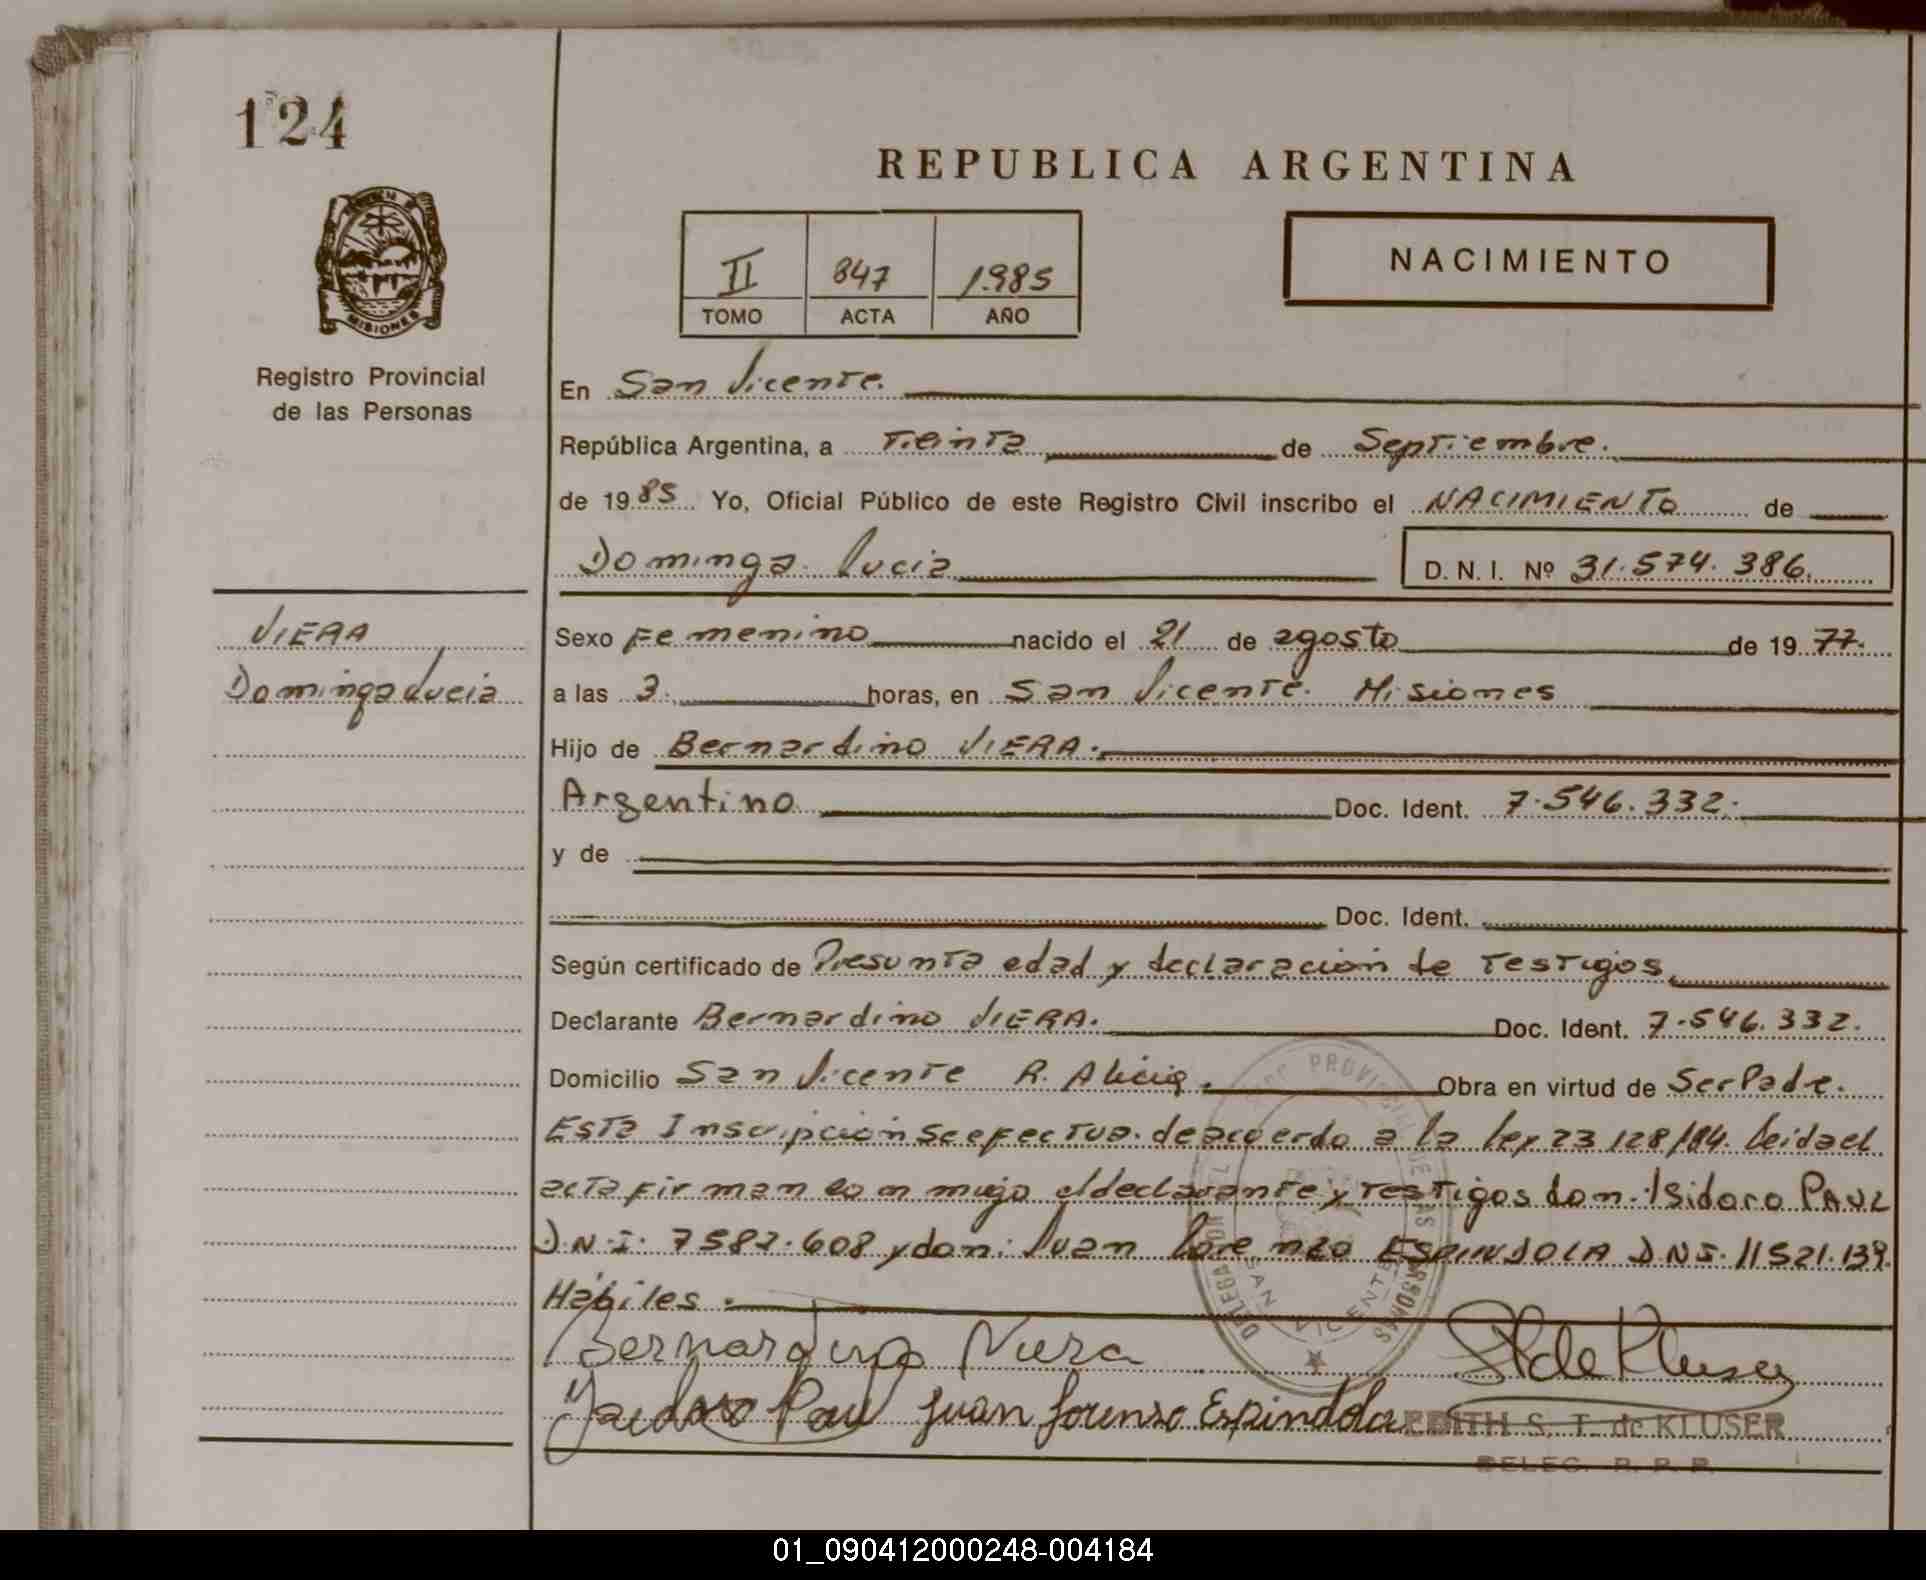 124
REPUBLICA ARGENTINA
II 847 1.985
TOMO ACTA AÑO
NACIMIENTO
MISIONES
Registro Provincial
de las Personas
En San Vicente.
República Argentina, a Treinta de Septiembre.
de 1985 Yo, Oficial Público de este Registro Civil inscribo el NACIMIENTO de
Dominga Lucia D. N. I. Nº 31.574.386.
VIERA
Dominga Lucia
Sexo Femenino nacido el 21 de agosto de 1977.
a las 3. horas, en San Vicente. Misiones
Hijo de Bernardino VIERA.
Argentino Doc. Ident. 7.546.332.
y de
Doc. Ident.
Según certificado de Presunta edad y declaración de Testigos
Declarante Bernardino VIERA. Doc. Ident. 7.546.332.
Domicilio San Vicente R. Alicia. Obra en virtud de Ser Padre.
Esta Inscripción se efectua de acuerdo a la ley 23128/84. leida el
acta firman conmigo el declarante y testigos don Isidoro PAUL
D.N.I. 7587.608 y don Juan Lorenzo ESPINDOLA D.N.I. 11521.139.
Hábiles.
Bernardino Viera
Juan Lorenzo Espindola
S T de Kluser
EDITH S. T. de KLUSER
DELEG. R. P. P.
SAN VICENTE
01_090412000248-004184